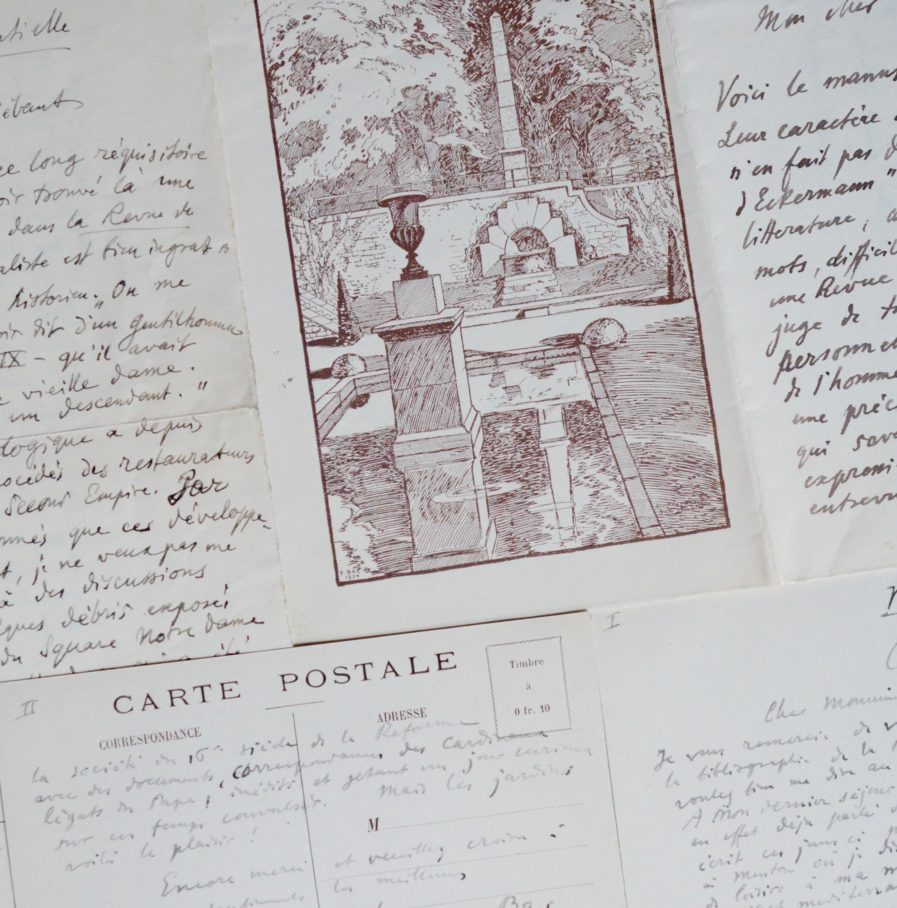 ce long réquisitoire
trouvé là une
dans la Revue de
est bien ingrat
historien. "On me
dit d'un gentilhomme
IX - qu'il avait
vieille dame.
un descendant."
a depuis
des restaurateurs
Second Empire. Par
que ces développe-
je ne veux pas me
à des discussions
débris exposés
du Square Notre Dame
1914
Mon cher
Voici le manus
Leur caractère
n'en fait pas d
d'Eckermann"
littérature, a
mots, difficil
une Revue
juge de t
personne
de l'homme
une préc
qui sav
expressi
entrevu
II
CARTE POSTALE
Timbre
à
0 fr. 10
CORRESPONDANCE
ADRESSE
la société du 16e siècle de la Réforme
avec des documents, correspondances des cardinaux
légats du Pape, inédits et jetant un jour curieux
sur ces temps convulsés. Mais les jardins
voilà le plaisir !
M
Encore merci
et veuillez croire à
les meilleurs
I
Cher Monsieur
Je vous remercie de v
la bibliographie de la
voulez bien me dire au
A mon dernier séjour
en effet déjà parlé
écrit ces jours ci
à Menton où je
de loisirs à ma